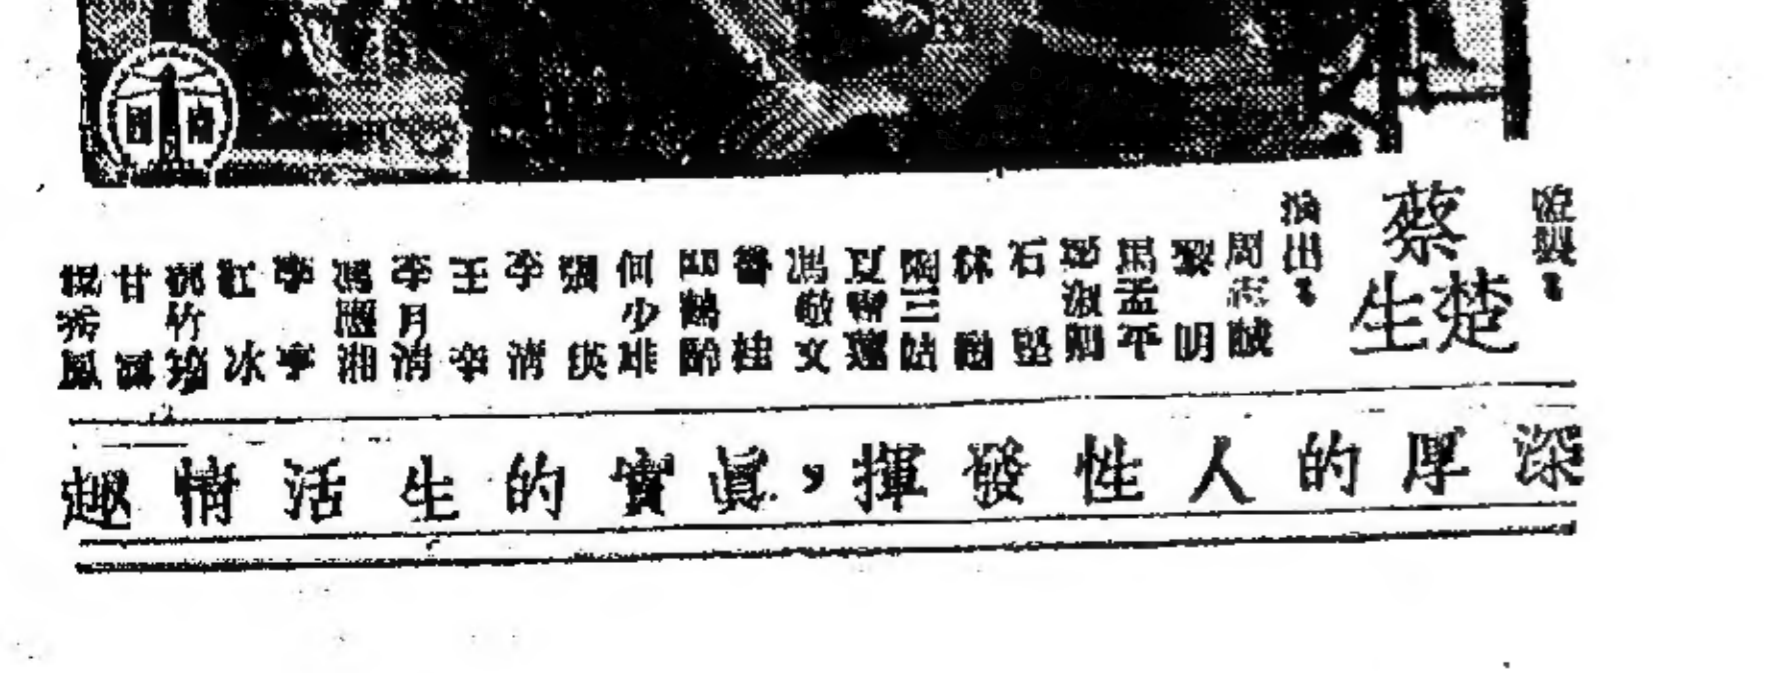 監製：
蔡楚生
演出：
周志誠
黎明
馬孟平
鄭淑嫻
石堅
林
陶三姑
夏寶蓮
馮敬文
魯桂
邱鶴齡
何少琲
張瑛
李清
王辛
李月清
馮應湘
李亨
紅冰
洗竹筠
甘露
倪秀鳳
深厚的人性發揮，眞實的生活情趣